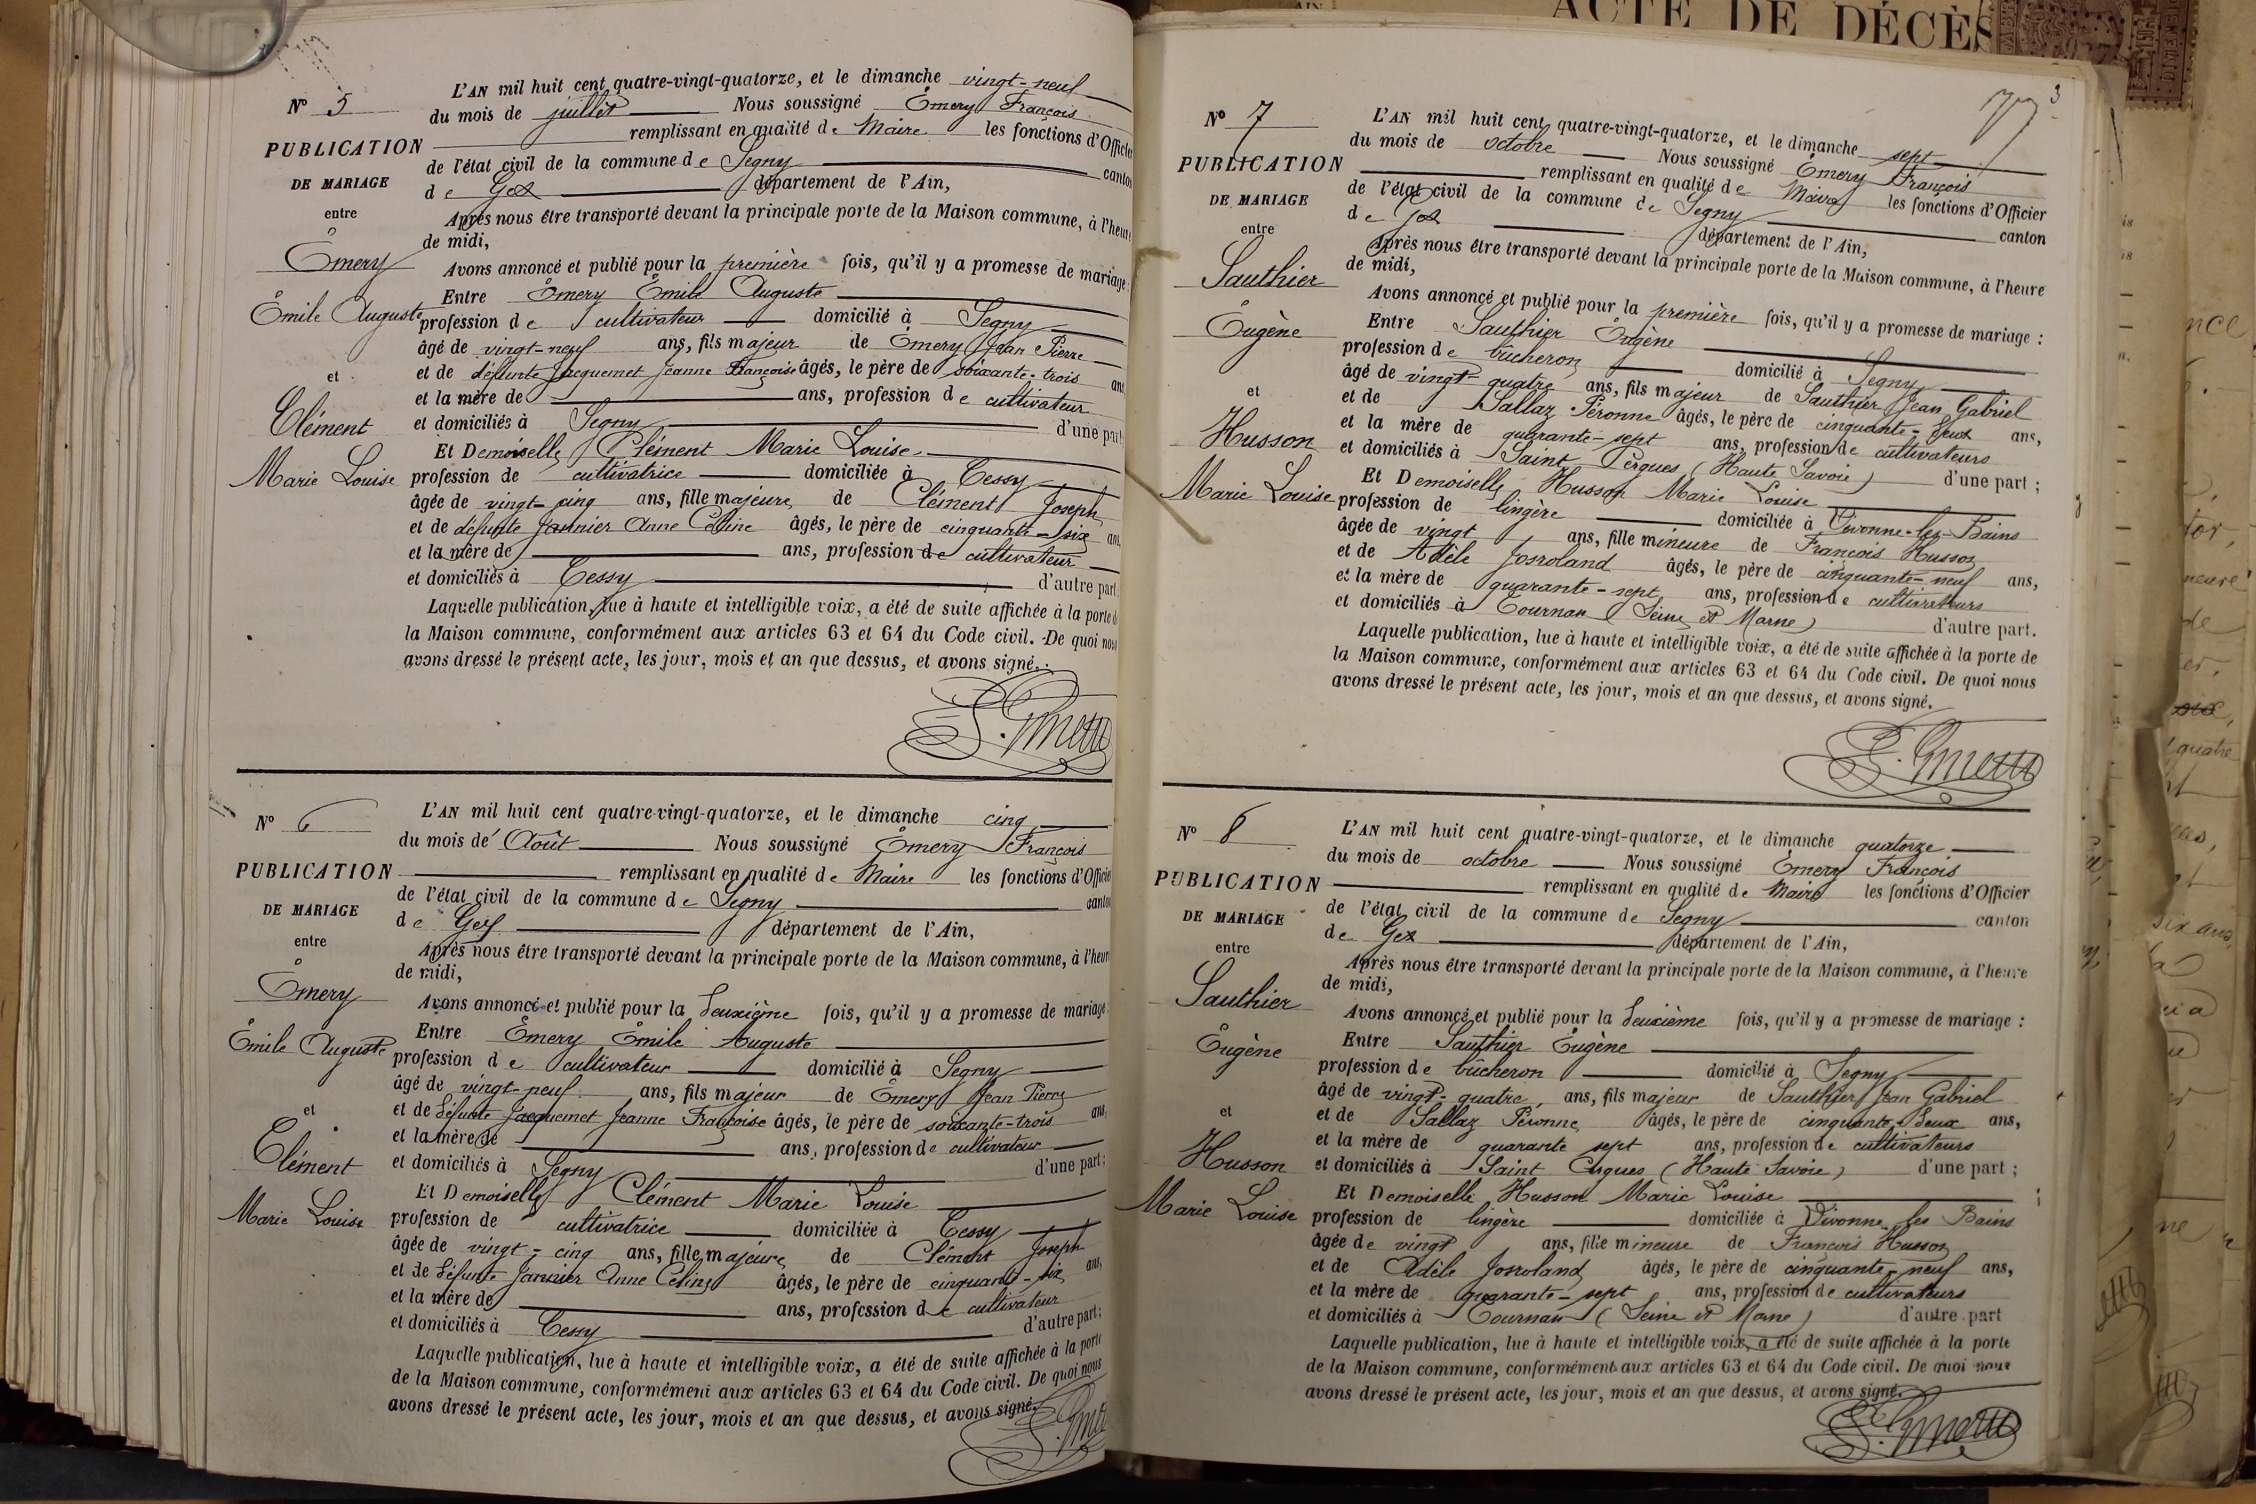 ACTE DE DÉCÈS
N° 5
PUBLICATION
DE MARIAGE
entre
Émery
Émile Auguste
et
Clément
Marie Louise
L'AN mil huit cent quatre-vingt-quatorze, et le dimanche vingt-neuf
du mois de juillet Nous soussigné Émery François
remplissant en qualité de Maire les fonctions d'Officier
de l'état civil de la commune de Segny canton
de Gex département de l'Ain,
Après nous être transporté devant la principale porte de la Maison commune, à l'heure
de midi,
Avons annoncé et publié pour la première fois, qu'il y a promesse de mariage :
Entre Émery Émile Auguste
profession de cultivateur domicilié à Segny
âgé de vingt-neuf ans, fils majeur de Émery Jean Pierre
et de défunte Jacquemet Jeanne Françoise âgés, le père de soixante-trois ans
et la mère de ans, profession de cultivateur
et domiciliés à Segny d'une part
Et Demoiselle Clément Marie Louise
profession de cultivatrice domiciliée à Cessy
âgée de vingt-cinq ans, fille majeure de Clément Joseph
et de défunte Jannier Anne Céline âgés, le père de cinquante-six ans
et la mère de ans, profession de cultivateur
et domiciliés à Cessy d'autre part
Laquelle publication, lue à haute et intelligible voix, a été de suite affichée à la porte de
la Maison commune, conformément aux articles 63 et 64 du Code civil. De quoi nous
avons dressé le présent acte, les jour, mois et an que dessus, et avons signé.
F. Émery
N° 6
PUBLICATION
DE MARIAGE
entre
Émery
Émile Auguste
et
Clément
Marie Louise
L'AN mil huit cent quatre-vingt-quatorze, et le dimanche cinq
du mois de Août Nous soussigné Émery François
remplissant en qualité de Maire les fonctions d'Officier
de l'état civil de la commune de Segny canton
de Gex département de l'Ain,
Après nous être transporté devant la principale porte de la Maison commune, à l'heure
de midi,
Avons annoncé et publié pour la deuxième fois, qu'il y a promesse de mariage :
Entre Émery Émile Auguste
profession de cultivateur domicilié à Segny
âgé de vingt-neuf ans, fils majeur de Émery Jean Pierre
et de défunte Jacquemet Jeanne Françoise âgés, le père de soixante-trois ans,
et la mère de ans, profession de cultivateur
et domiciliés à Segny d'une part ;
Et Demoiselle Clément Marie Louise
profession de cultivatrice domiciliée à Cessy
âgée de vingt-cinq ans, fille majeure de Clément Joseph
et de défunte Jannier Anne Céline âgés, le père de cinquante-six ans,
et la mère de ans, profession de cultivateur
et domiciliés à Cessy d'autre part ;
Laquelle publication, lue à haute et intelligible voix, a été de suite affichée à la porte
de la Maison commune, conformément aux articles 63 et 64 du Code civil. De quoi nous
avons dressé le présent acte, les jour, mois et an que dessus, et avons signé.
3
N° 7
PUBLICATION
DE MARIAGE
entre
Sauthier
Eugène
et
Husson
Marie Louise
L'AN mil huit cent quatre-vingt-quatorze, et le dimanche sept
du mois de octobre Nous soussigné Émery François
remplissant en qualité de Maire les fonctions d'Officier
de l'état civil de la commune de Segny canton
de Gex département de l'Ain,
Après nous être transporté devant la principale porte de la Maison commune, à l'heure
de midi,
Avons annoncé et publié pour la première fois, qu'il y a promesse de mariage :
Entre Sauthier Eugène
profession de bûcheron domicilié à Segny
âgé de vingt-quatre ans, fils majeur de Sauthier Jean Gabriel
et de Sallaz Péronne âgés, le père de cinquante-deux ans,
et la mère de quarante-sept ans, profession de cultivateurs
et domiciliés à Saint Cergues (Haute Savoie) d'une part ;
Et Demoiselle Husson Marie Louise
profession de lingère domiciliée à Divonne-les-Bains
âgée de vingt ans, fille mineure de François Husson
et de Adèle Josroland âgés, le père de cinquante-neuf ans,
et la mère de quarante-sept ans, profession de cultivateurs
et domiciliés à Tournan (Seine et Marne) d'autre part.
Laquelle publication, lue à haute et intelligible voix, a été de suite affichée à la porte de
la Maison commune, conformément aux articles 63 et 64 du Code civil. De quoi nous
avons dressé le présent acte, les jour, mois et an que dessus, et avons signé.
F. Émery
N° 8
PUBLICATION
DE MARIAGE
entre
Sauthier
Eugène
et
Husson
Marie Louise
L'AN mil huit cent quatre-vingt-quatorze, et le dimanche quatorze
du mois de octobre Nous soussigné Émery François
remplissant en qualité de Maire les fonctions d'Officier
de l'état civil de la commune de Segny canton
de Gex département de l'Ain,
Après nous être transporté devant la principale porte de la Maison commune, à l'heure
de midi,
Avons annoncé et publié pour la deuxième fois, qu'il y a promesse de mariage :
Entre Sauthier Eugène
profession de bûcheron domicilié à Segny
âgé de vingt-quatre ans, fils majeur de Sauthier Jean Gabriel
et de Sallaz Péronne âgés, le père de cinquante-deux ans,
et la mère de quarante sept ans, profession de cultivateurs
et domiciliés à Saint Cergues (Haute Savoie) d'une part ;
Et Demoiselle Husson Marie Louise
profession de lingère domiciliée à Divonne-les Bains
âgée de vingt ans, fille mineure de François Husson
et de Adèle Josroland âgés, le père de cinquante-neuf ans,
et la mère de quarante-sept ans, profession de cultivateurs
et domiciliés à Tournan (Seine et Marne) d'autre part
Laquelle publication, lue à haute et intelligible voix, a été de suite affichée à la porte
de la Maison commune, conformément aux articles 63 et 64 du Code civil. De quoi nous
avons dressé le présent acte, les jour, mois et an que dessus, et avons signé.
F. Émery